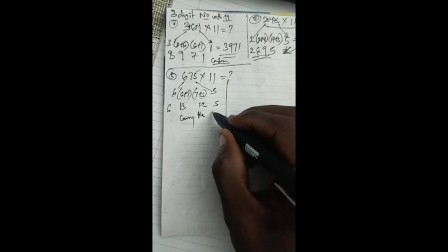 3 digit No with 11
361 × 11 = ?
3 (3+6) (6+1) 1 = 3971
3 9 7 1
245 × 11
2 (2+4) (4+5) 5
2 6 9 5
675 × 11 = ?
6 (6+7) (7+5) 5
6 13 12 5
Carry the